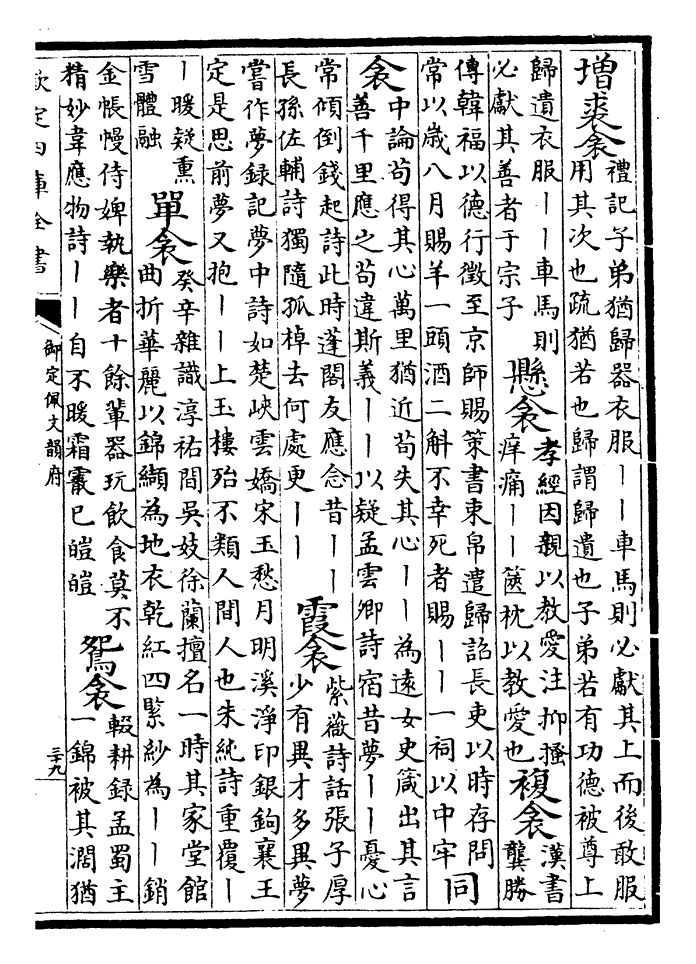 增裘衾
禮記子弟猶歸器衣服丨丨車馬則必獻其上而後敢服
用其次也疏猶若也歸謂歸遺也子弟若有功德被尊上
歸遺衣服丨丨車馬則
必獻其善者于宗子
懸衾
孝經因親以教愛注抑搔
痒痛丨丨篋枕以教愛也
複衾
漢書
龔勝
傳韓福以德行徵至京師賜策書束帛遣歸詔長吏以時存問
常以歲八月賜羊一頭酒二斛不幸死者賜丨丨一祠以中牢
同
衾
中論苟得其心萬里猶近苟失其心丨丨為遠女史箴出其言
善千里應之苟違斯義丨丨以疑孟雲卿詩宿昔夢丨丨憂心
常傾倒錢起詩此時蓬閣友應念昔丨丨
長孫佐輔詩獨隨孤棹去何處更丨丨
霞衾
紫薇詩話張子厚
少有異才多異夢
嘗作夢録記夢中詩如楚峽雲嬌宋玉愁月明溪淨印銀鉤襄王
定是思前夢又抱丨丨上玉樓殆不類人間人也朱純詩重覆丨
丨暖疑熏
雪體融
單衾
癸辛雜識淳祐間吳妓徐蘭擅名一時其家堂館
曲折華麗以錦纈為地衣乾紅四緊紗為丨丨銷
金帳幔侍婢執樂者十餘輩器玩飲食莫不
精妙韋應物詩丨丨自不暖霜霰已皚皚
鴛衾
輟耕録孟蜀主
一錦被其濶猶
欽定四庫全書
御定佩文韻府
三十九